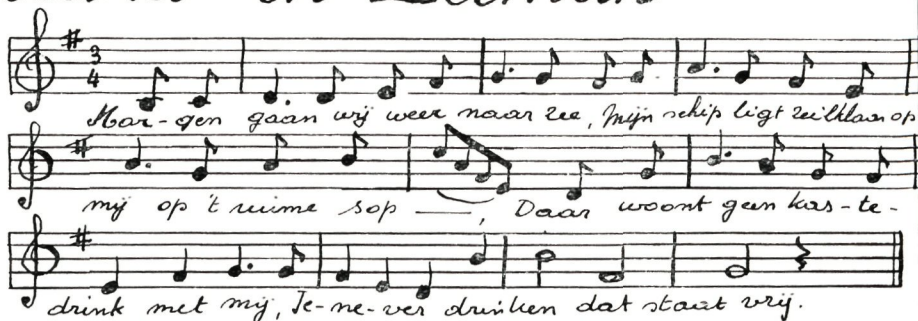 3
4
Mor-gen gaan wij weer naar zee, Mijn schip ligt zeilklaar op
mij op 't ruime sop —, Daar woont geen kas-te-
drink met mij, Je-ne-ver drinken dat staat vrij.